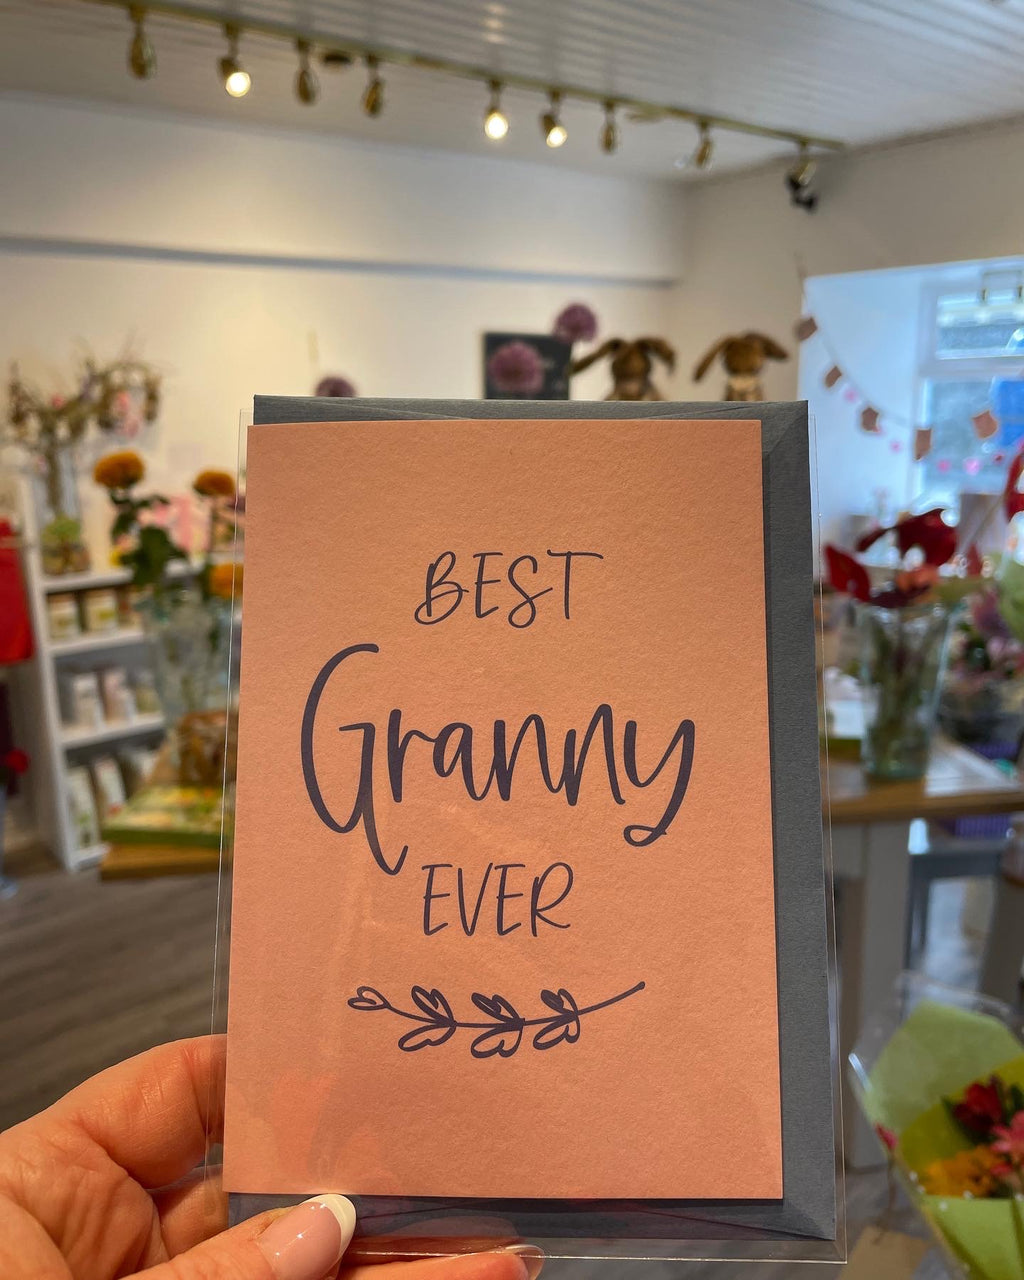 BEST
Granny
EVER